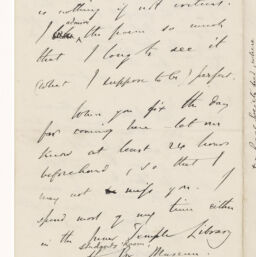 is nothing if not critical.
I admire the poem so much
that I long to see it
(what I suppose to be) perfect.
When you fix the day
for coming here let me
know at least 24 hours
beforehand, so that I
may not miss you. I
spend most of my time either
in the Inner Temple Library
Students' Room
Museum.